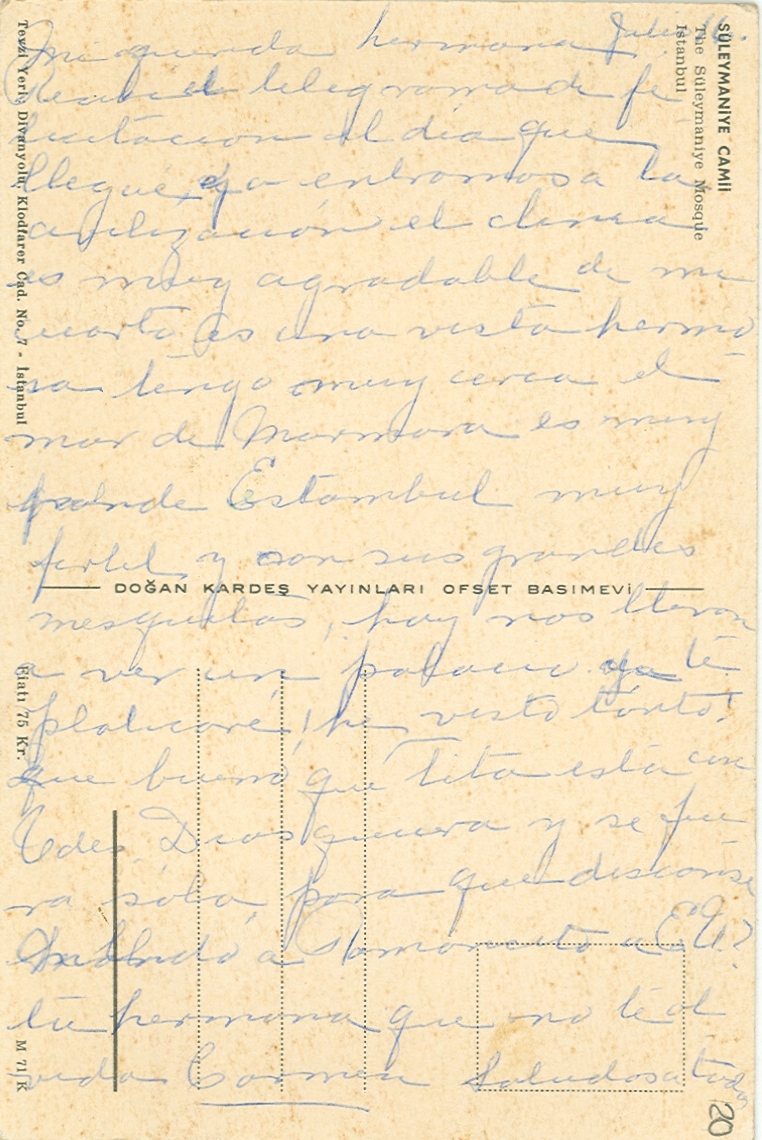 Mi querida hermana Julio
Recibi el telegrama de fe
licitacion el dia que
llegue, ya entramos a la
civilización el clima
es muy agradable de mi
cuarto es una vista hermo
sa tengo muy cerca el
mar de Marmara es muy
grande Estambul muy
fertil y con sus grandes
mesquitas, hoy nos llevan
a ver un palacio ya te
platicaré, ¡he visto tanto!
que bueno que Tita está con
Udes. Dios quiera y se fue
ra sóla, para que descanse
a Ramoncito a EU?
tu hermana que no te ol
vida Carmen Saludos a todos
SÜLEYMANİYE CAMİİ
The Süleymaniye Mosque
Istanbul
Tevzi Yeri: Divanyolu, Klodfarer Cad. No. 7 - İstanbul
DOĞAN KARDEŞ YAYINLARI OFSET BASIMEVİ
Fiatı 75 Kr.
M 71 K
20